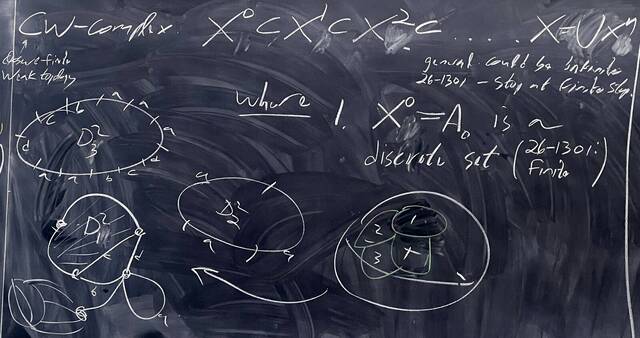 CW-complex. X⁰ ⊂ X¹ ⊂ X² ⊂ ..... X = ∪Xⁿ
Closure-finite
Weak topology
general could be infinite
26-1301 - Stop at finite step.
where 1. X⁰ = A₀ is a
discrete set (26-1301: finite)
c b a a
d D²₃ a
d
a a b c
a
D²₂
a
D²₁
b
a
1
2
3